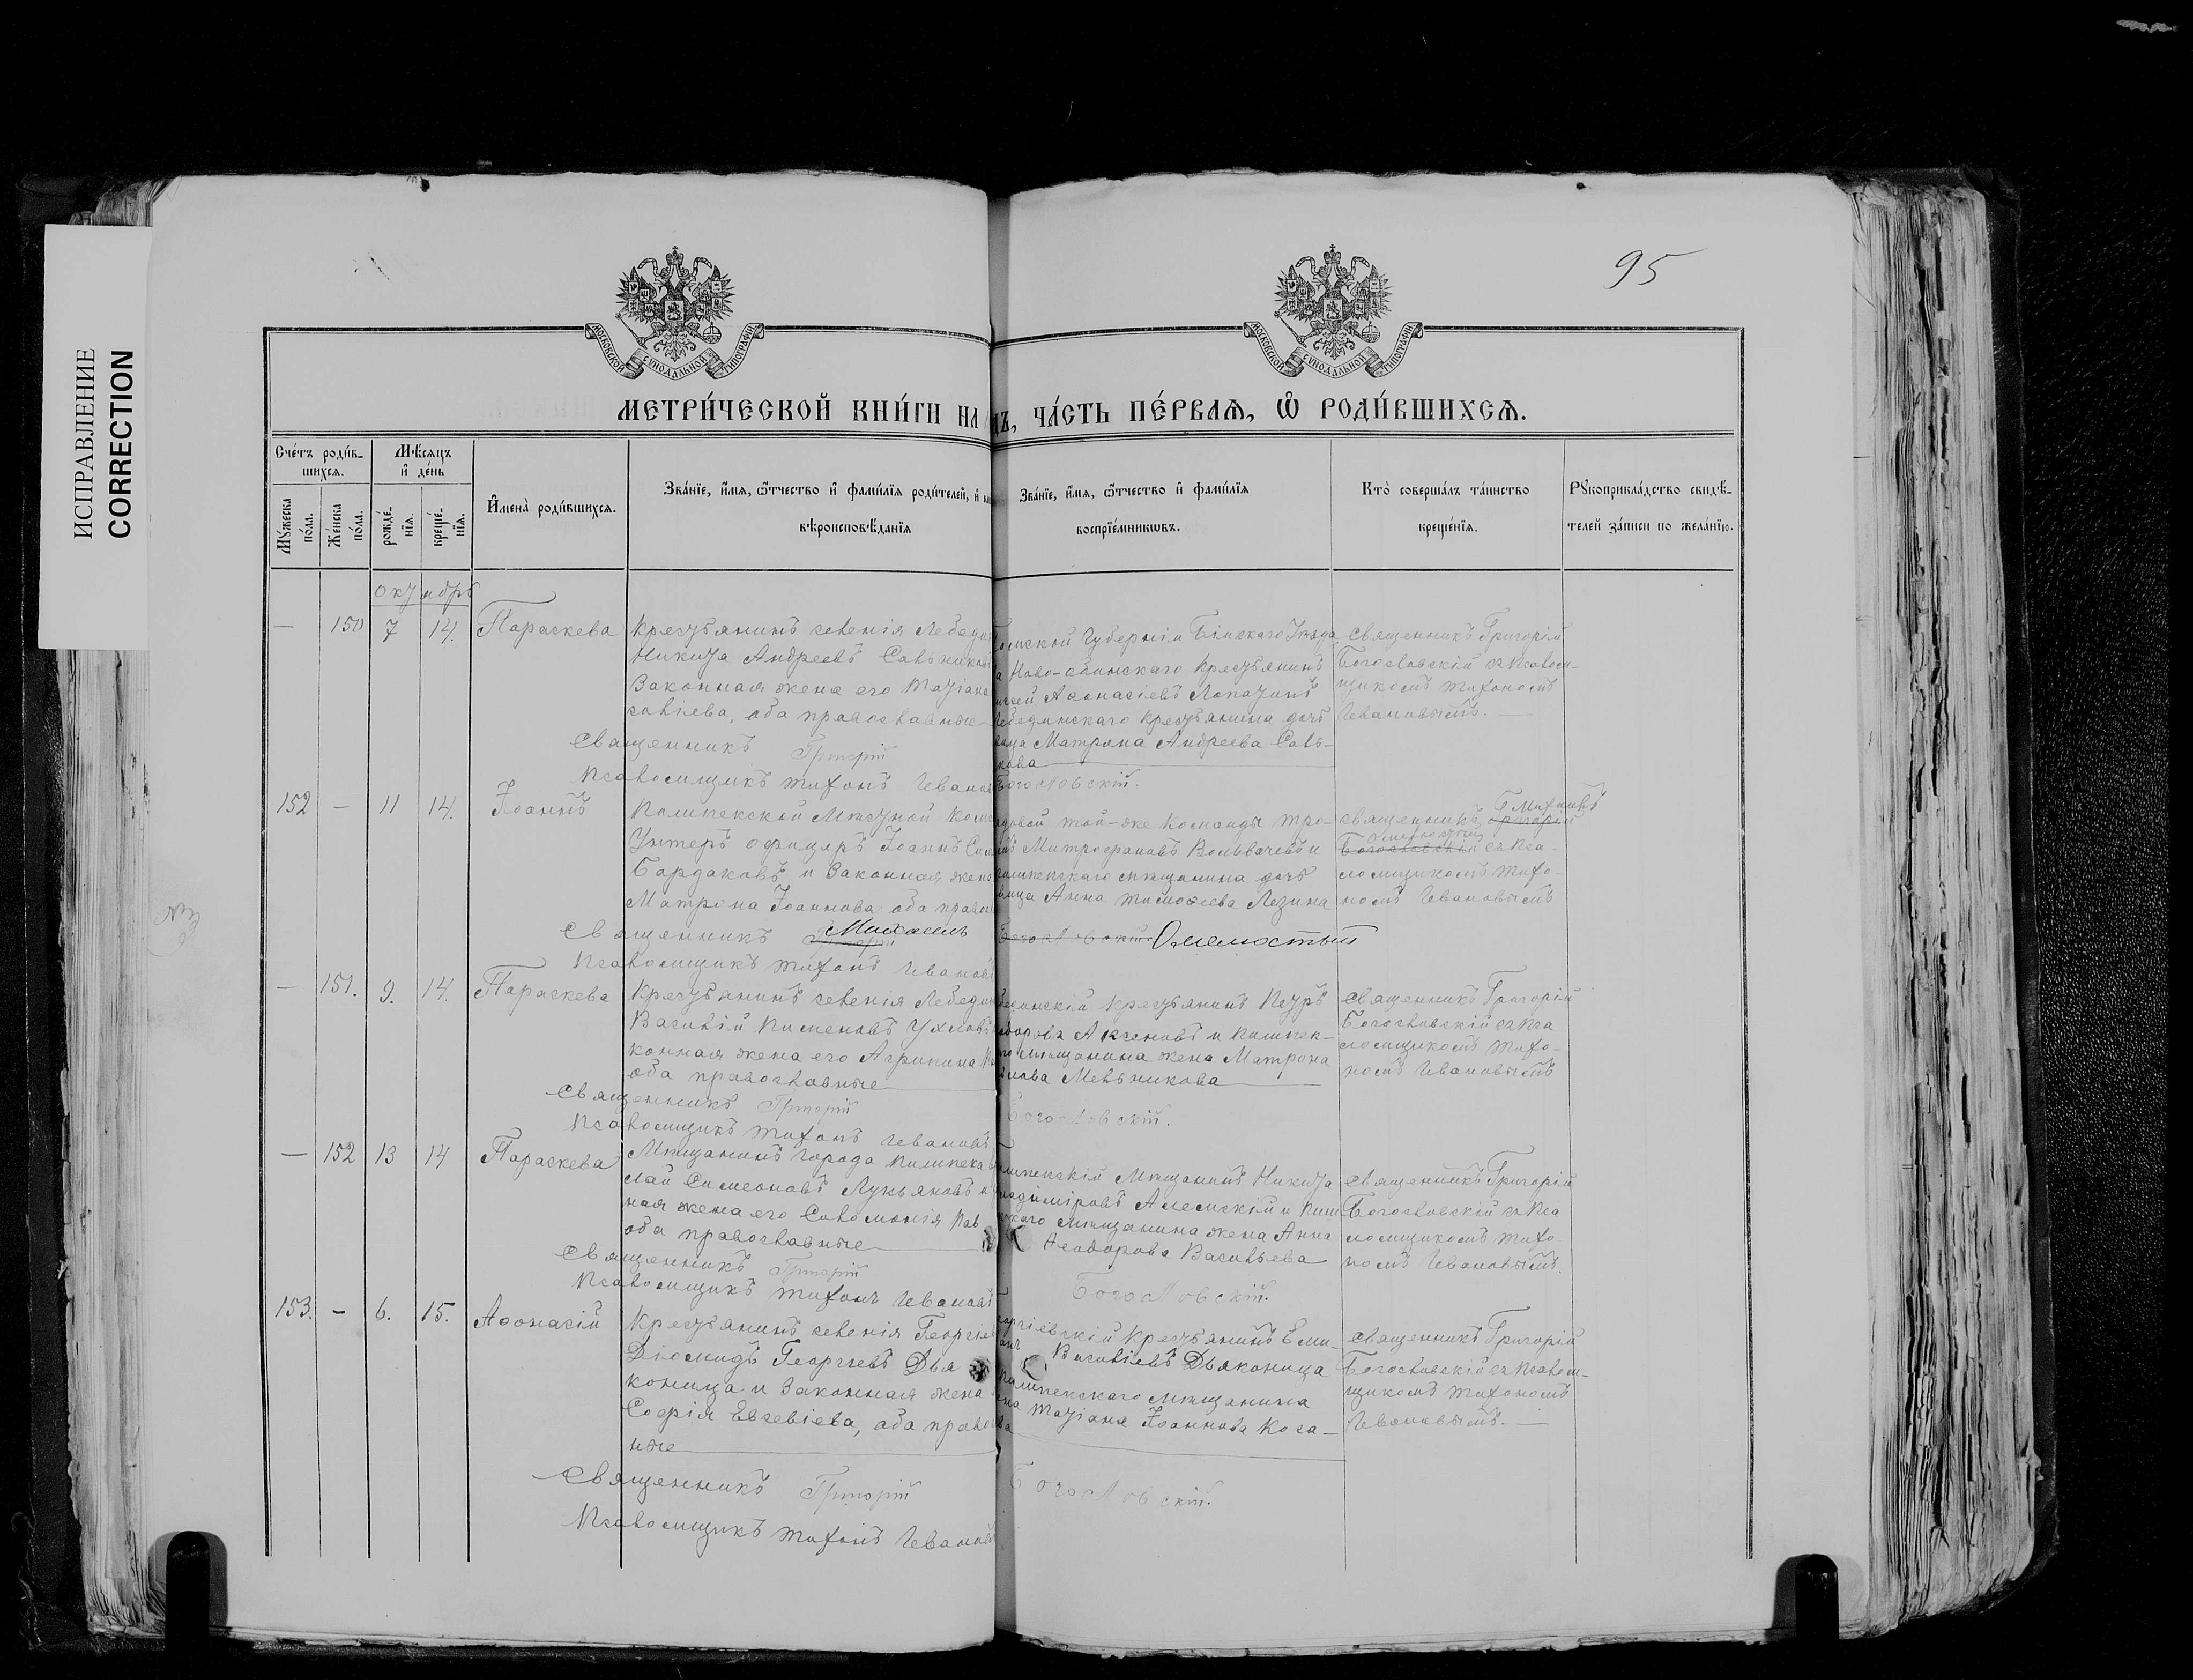 ИСПРАВЛЕНИЕ
CORRECTION
95
МОСКОВСКОЙ СѴНОДАЛЬНОЙ ТИПОГРАФІИ
МОСКОВСКОЙ СѴНОДАЛЬНОЙ ТИПОГРАФІИ
МЕТРИ́ЧЕСКОЙ КНИ́ГИ НА
ДЪ, ЧА́СТЬ ПЕ́РВАѦ, Ѽ РОДИ́ВШИХСѦ.
Сче́тъ роди́в-
шихсѧ.
Мѣ́сѧцъ
и҆ де́нь
Мꙋ́жеска по́ла.
Же́нска по́ла.
рожде́-нїѧ.
креще́-нїѧ.
И҆мена̀ роди́вшихсѧ.
Зва́нїе, и҆́мѧ, ѻ҆́тчество и҆ фами́лїѧ роди́телей, и҆
вѣроисповѣ́данїѧ
Зва́нїе, и҆́мѧ, ѻ҆́тчество и҆ фами́лїѧ
воспрїе́мникѡвъ.
Кто̀ соверша́лъ та́инство
креще́нїѧ.
Рꙋкоприкла́дство свидѣ́-
телей за́писи по жела́нїю.
октябрь
— 150 7 14. Параскева
Крестьянинъ селенія Лебедин
Никита Андреевъ Савьников
Законная жена его Татіана
савіева, оба православные
омской Губерніи Бійскаго Уѣзда
а Ново-обинскаго Крестьянинъ
сей Аѳонасіевъ Лопатинъ
Лебединскаго Крестьянина дочь
вица Матрона Андреева Савь-
кова
Священникъ Григорій
Богословскій съ Псаломщ-
щикомъ Тихономъ
Ивановымъ.
Священникъ Григорій Богословскій.
Псаломщикъ Тихонъ Иванов
152 — 11 14. Іоаннъ
Пишпекской Мѣстной Кома
Унтеръ офицеръ Іоаннъ Сим
Бардаковъ и Законная жена
Матрона Іоаннова оба правос
ядовой той-же Команды Тро-
мъ Митрофановъ Вольвачевъ и
ишпекскаго мѣщанина дочь
вица Анна Тимоѳеева Лезина
Священникъ Григорій
Михаилъ
Богословскій съ Пса-
ломщикомъ Тихо-
номъ Ивановымъ
Священникъ Григорій Михаилъ Богословскій
Псаломщикъ Тихонъ Ивановъ
— 151. 9. 14. Параскева
Крестьянинъ селенія Лебедин
Василій Пименовъ Ухловъ
конная жена его Агрипина
оба православные
бединскій Крестьянинъ Петръ
одоровъ Аксеновъ и Пишпек-
го мѣщанина жена Матрона
лова Мельникова
Священникъ Григорій
Богословскій съ Пса
ломщикомъ Тихо-
номъ Ивановымъ
Священникъ Григорій Богословскій.
Псаломщикъ Тихонъ Ивановъ
— 152 13 14 Параскева
Мѣщанинъ города Пишпека
лай Симеоновъ Лукьяновъ и
ная жена его Соломонія Пав
оба православные
ишпекскій Мѣщанинъ Никита
ладиміровъ и Пиш
скаго мѣщанина жена Анна
Ѳеодорова Васильева
Священникъ Григорій
Богословскій съ Пса
ломщикомъ Тихо
номъ Ивановымъ.
Священникъ Григорій Богословскій.
Псаломщикъ Тихонъ Ивановъ
153. — 6. 15. Аѳонасій
Крестьянинъ селенія Георгіев
Діомидъ Георгіевъ Дья
коница и Законная жена
Софія Евсевіева, оба правос
ные
оргіевскій Крестьянинъ Еми-
анъ Василіевъ Дьяконица
Пишпекскаго мѣщанина
на Татіана Іоаннова Коза-
ва
Священникъ Григорій
Богословскій съ Псалом-
щикомъ Тихономъ
Ивановымъ.
Священникъ Григорій Богословскій.
Псаломщикъ Тихонъ Иванов